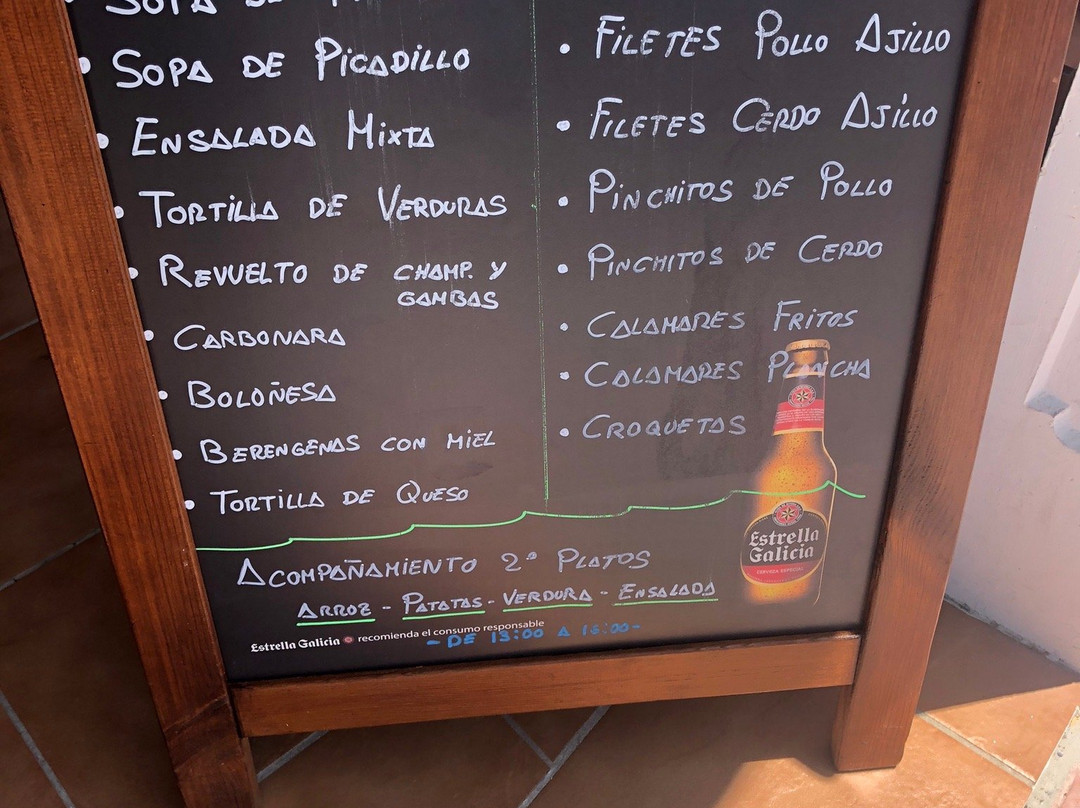 SOPA DE
SOPA DE PICADILLO
ENSALADA MIXTA
TORTILLA DE VERDURAS
REVUELTO DE CHAMP. Y
GAMBAS
CARBONARA
BOLOÑESA
BERENGENAS CON MIEL
TORTILLA DE QUESO
FILETES POLLO AJILLO
FILETES CERDO AJILLO
PINCHITOS DE POLLO
PINCHITOS DE CERDO
CALAMARES FRITOS
CALAMARES PLANCHA
CROQUETAS
Estrella
Galicia
CERVEZA ESPECIAL
ACOMPAÑAMIENTO 2º PLATOS
ARROZ - PATATAS - VERDURA - ENSALADA
Estrella Galicia recomienda el consumo responsable
- DE 13:00 A 16:00 -